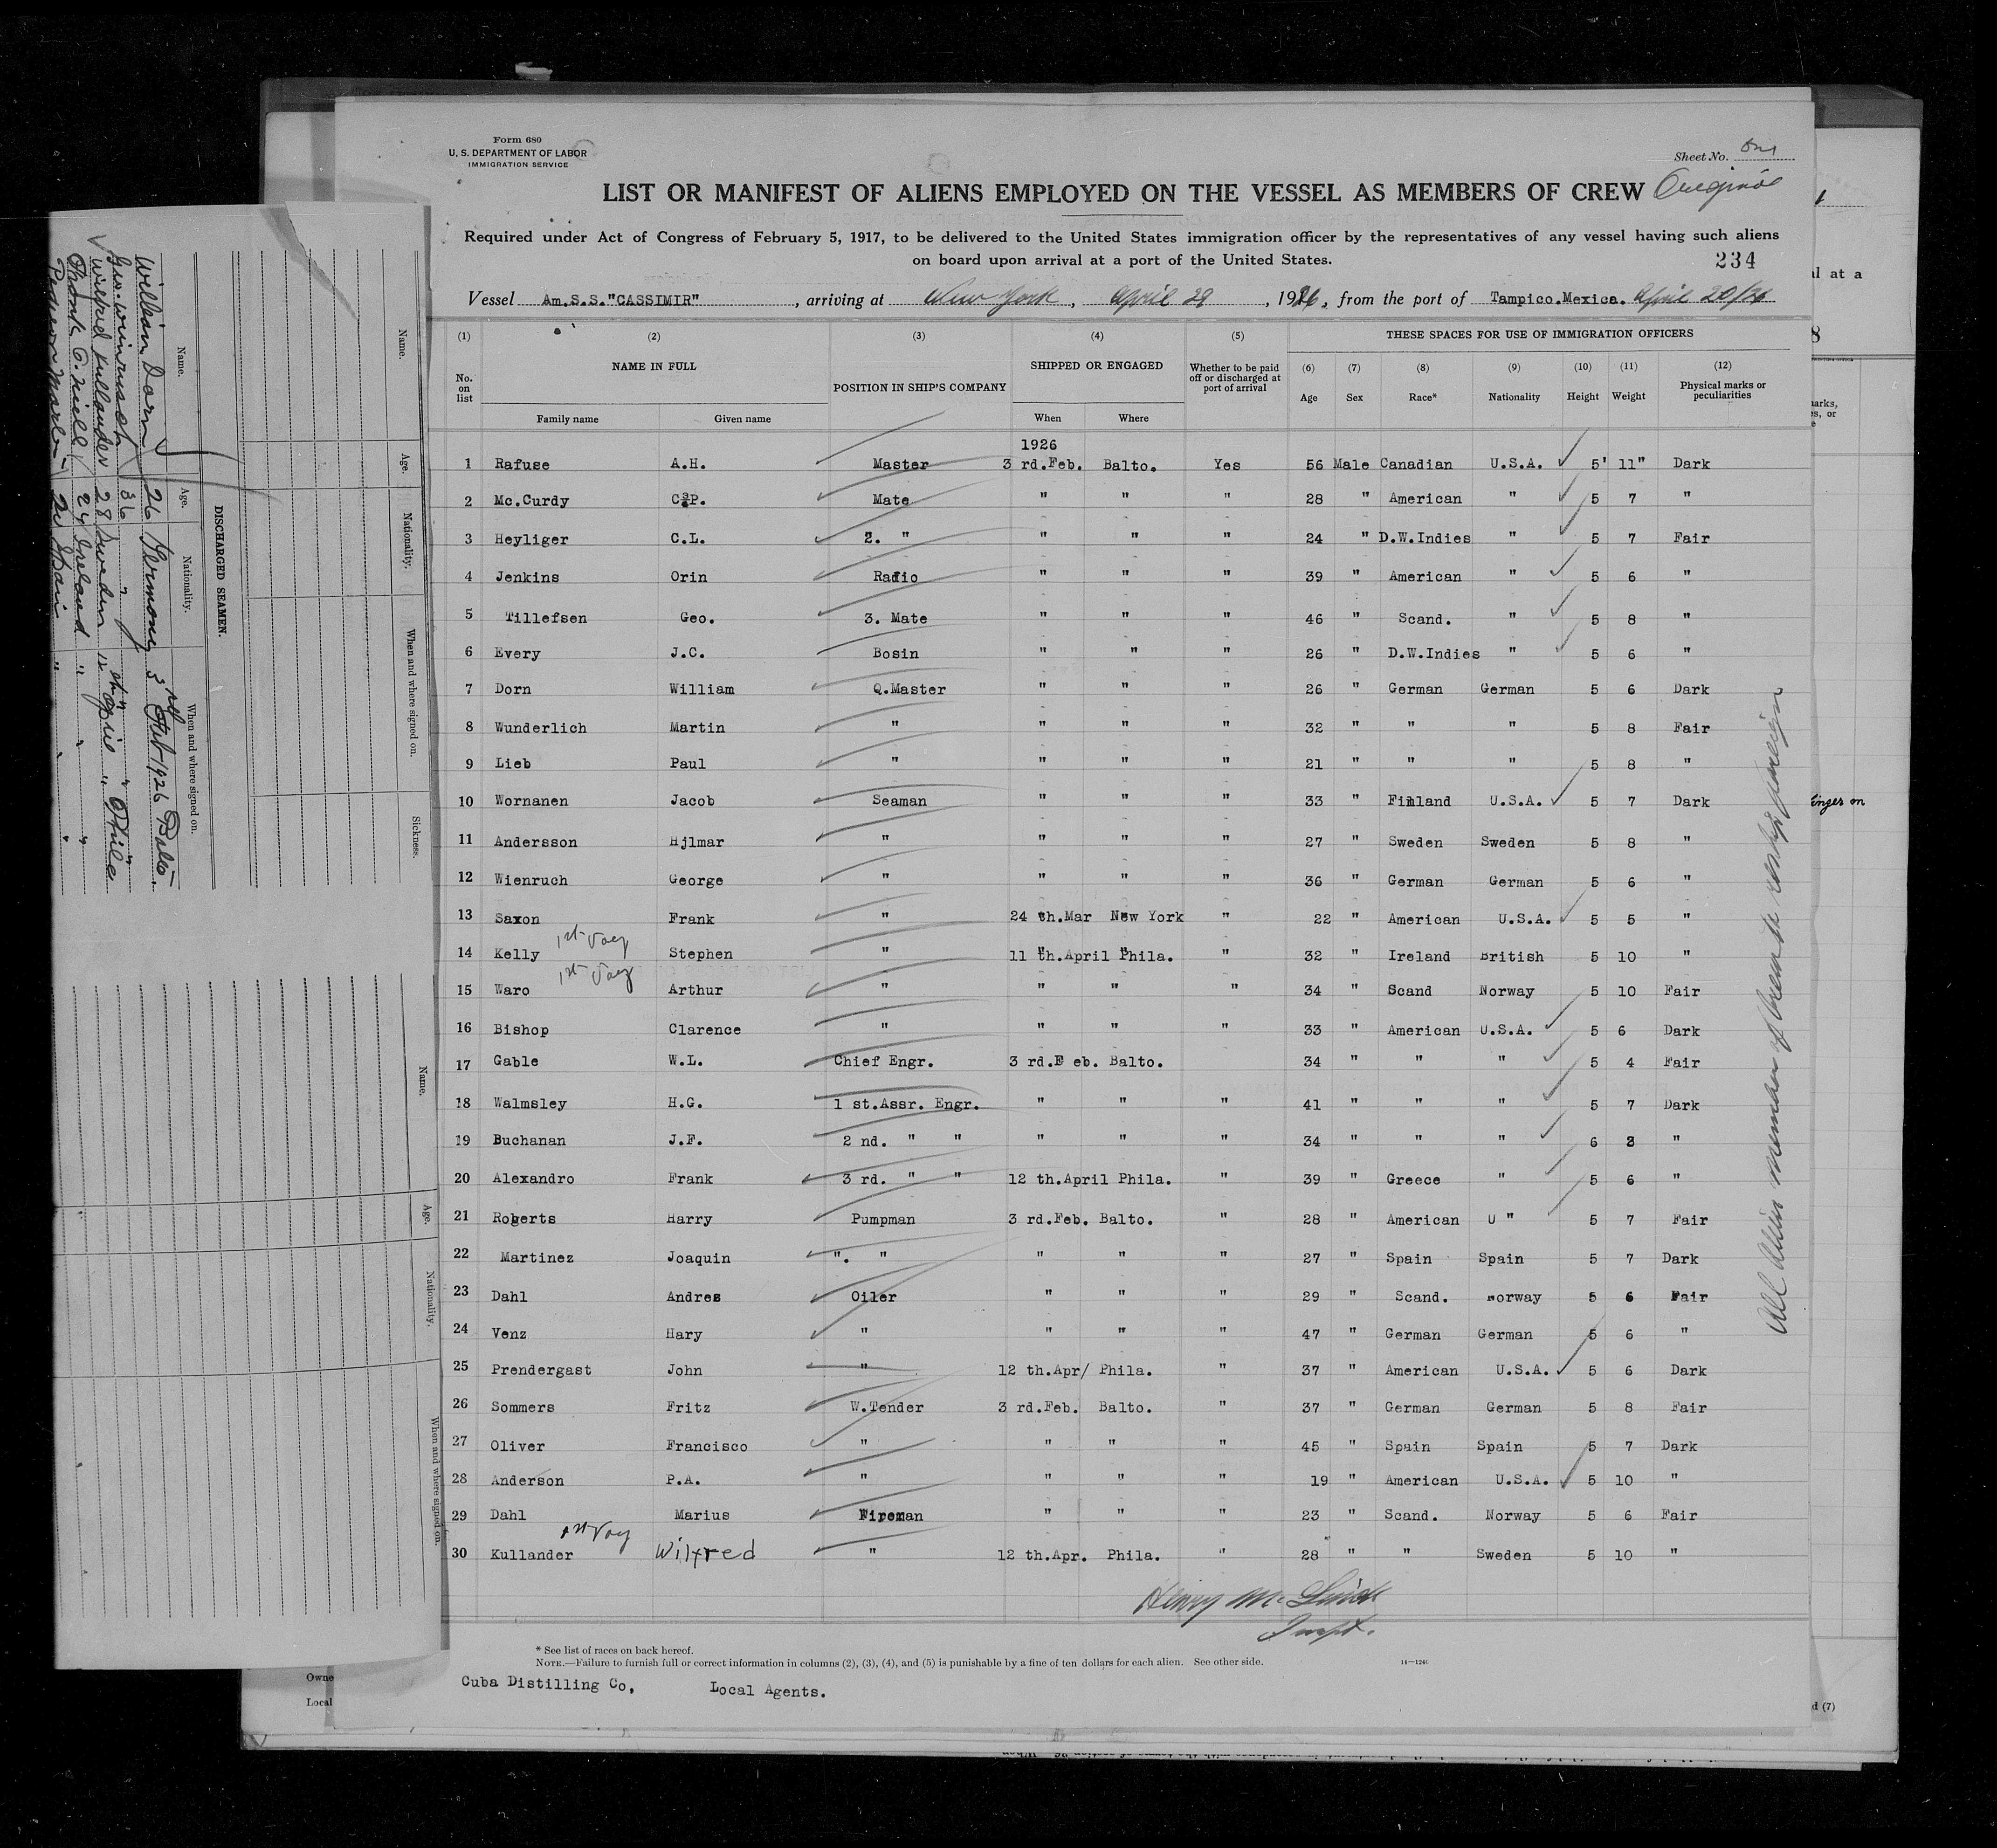 Form 680
U. S. DEPARTMENT OF LABOR
IMMIGRATION SERVICE
Sheet No. One
LIST OR MANIFEST OF ALIENS EMPLOYED ON THE VESSEL AS MEMBERS OF CREW Original
Required under Act of Congress of February 5, 1917, to be delivered to the United States immigration officer by the representatives of any vessel having such aliens
on board upon arrival at a port of the United States.
234
Vessel Am.S.S."CASSIMIR", arriving at New York, April 29, 1926, from the port of Tampico.Mexico. April 20/26
(1) (2) (3) (4) (5) THESE SPACES FOR USE OF IMMIGRATION OFFICERS
No. on list NAME IN FULL POSITION IN SHIP'S COMPANY SHIPPED OR ENGAGED Whether to be paid off or discharged at port of arrival (6) (7) (8) (9) (10) (11) (12)
Family name Given name When Where Age Sex Race* Nationality Height Weight Physical marks or peculiarities
1926
1 Rafuse A.H. Master 3 rd.Feb. Balto. Yes 56 Male Canadian U.S.A. 5' 11" Dark
2 Mc.Curdy C.P. Mate " " " 28 " American " 5 7 "
3 Heyliger C.L. 2. " " " " 24 " D.W.Indies " 5 7 Fair
4 Jenkins Orin Radio " " " 39 " American " 5 6 "
5 Tillefsen Geo. 3. Mate " " " 46 " Scand. " 5 8 "
6 Every J.C. Bosin " " " 26 " D.W.Indies " 5 6 "
7 Dorn William Q.Master " " " 26 " German German 5 6 Dark
8 Wunderlich Martin " " " " 32 " " " 5 8 Fair
9 Lieb Paul " " " " 21 " " " 5 8 "
10 Wornanen Jacob Seaman " " " 33 " Finland U.S.A. 5 7 Dark
11 Andersson Hjlmar " " " " 27 " Sweden Sweden 5 8 "
12 Wienruch George " " " " 36 " German German 5 6 "
13 Saxon Frank " 24 th.Mar New York " 22 " American U.S.A. 5 5 "
1st Voy
14 Kelly Stephen " 11 th.April Phila. " 32 " Ireland British 5 10 "
1st Voy
15 Waro Arthur " " " " 34 " Scand Norway 5 10 Fair
16 Bishop Clarence " " " " 33 " American U.S.A. 5 6 Dark
17 Gable W.L. Chief Engr. 3 rd.F eb. Balto. 34 " " " 5 4 Fair
18 Walmsley H.G. 1 st.Assr. Engr. " " " 41 " " " 5 7 Dark
19 Buchanan J.F. 2 nd. " " " " " 34 " " " 6 2 "
20 Alexandro Frank 3 rd. " " 12 th.April Phila. " 39 " Greece " 5 6 "
21 Roberts Harry Pumpman 3 rd.Feb. Balto. " 28 " American U " 5 7 Fair
22 Martinez Joaquin ". " " " " 27 " Spain Spain 5 7 Dark
23 Dahl Andres Oiler " " " 29 " Scand. Norway 5 6 Fair
24 Venz Hary " " " " 47 " German German 5 6 "
25 Prendergast John " 12 th.Apr/ Phila. " 37 " American U.S.A. 5 6 Dark
26 Sommers Fritz W.Tender 3 rd.Feb. Balto. " 37 " German German 5 8 Fair
27 Oliver Francisco " " " " 45 " Spain Spain 5 7 Dark
28 Anderson P.A. " " " " 19 " American U.S.A. 5 10 "
29 Dahl Marius Fireman " " " 23 " Scand. Norway 5 6 Fair
1st Voy
30 Kullander Wilfred " 12 th.Apr. Phila. " 28 " " Sweden 5 10 "
Henry Mc
Inspt.
* See list of races on back hereof.
NOTE.—Failure to furnish full or correct information in columns (2), (3), (4), and (5) is punishable by a fine of ten dollars for each alien. See other side.
14—1240
Cuba Distilling Co, Local Agents.
All Aliens members of crew to reship foreign
DISCHARGED SEAMEN.
Name. Age. Nationality. When and where signed on.
William Dorn 26 Germany 3rd Feb 1926 Balto.
Geo. Winrusch 36 " " " "
Wilfred Kullander 28 Sweden 12th April " Phila
Frank O'Neill 24 Ireland " " "
Pedro Martin Spain " " "
Name. Age. Nationality. When and where signed on. Sickness.
Name. Age. Nationality. When and where signed on.
Owne
Local
l at a
8
arks,
s, or
e
inger on
d (7)